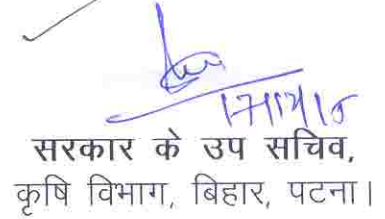 सरकार के उप सचिव,
कृषि विभाग, बिहार, पटना।